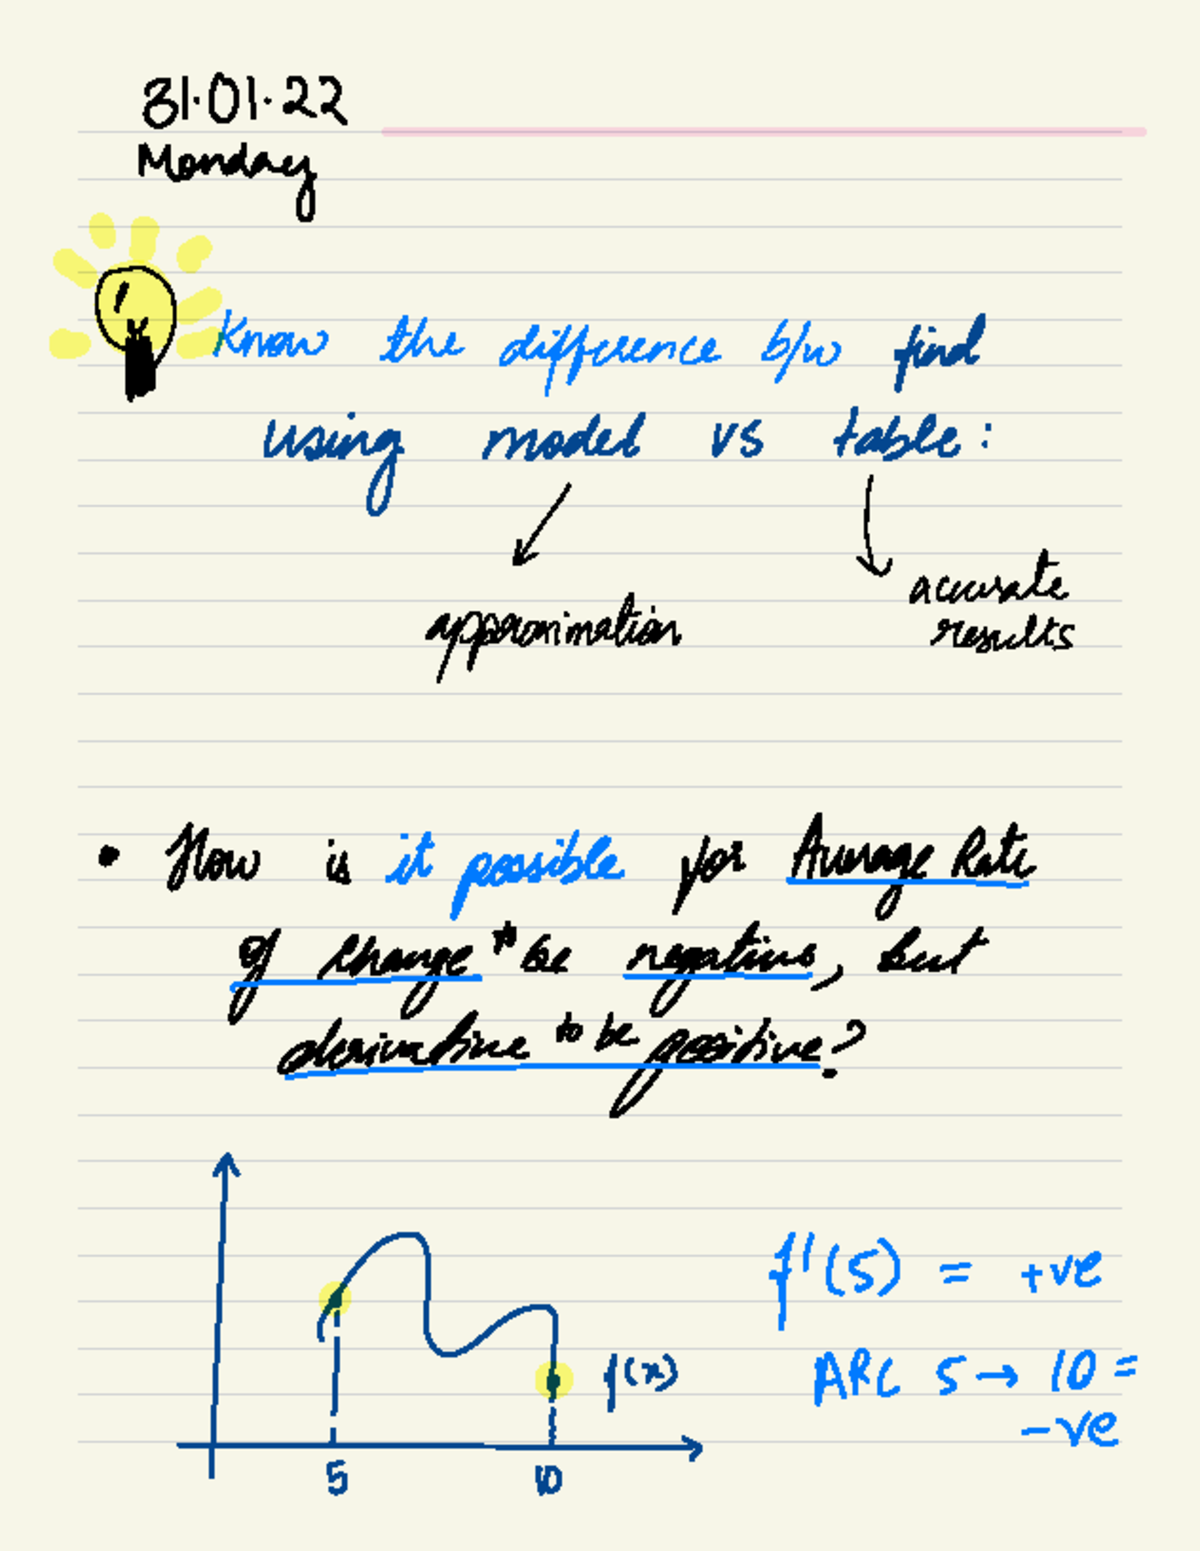 31.01.22
Monday
Know the difference b/w find
using model vs table:
approximation
accurate
results
• How is it possible for Average Rate
of change to be negative, but
derivative to be positive?
f'(5) = +ve
f(x)
ARC 5 → 10 =
-ve
5 10